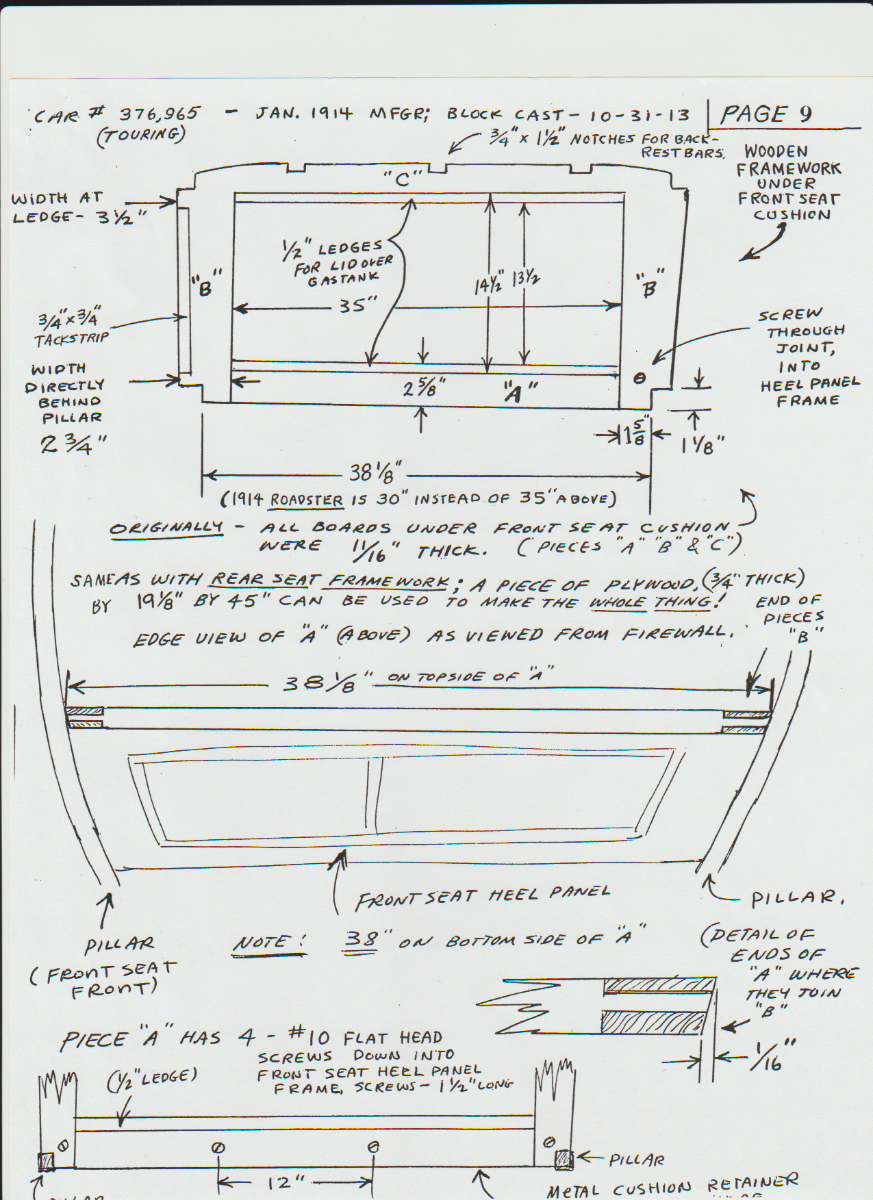 CAR # 376,965 - JAN. 1914 MFGR; BLOCK CAST - 10-31-13
PAGE 9
(TOURING)
3/4" x 1 1/2" NOTCHES FOR BACK-
REST BARS.
WOODEN
FRAMEWORK
UNDER
FRONT SEAT
CUSHION
"C"
WIDTH AT
LEDGE - 3 1/2"
1/2" LEDGES
FOR LID OVER
GAS TANK
"B"
14 1/2"
13 1/2
"B"
35"
3/4" x 3/4"
TACKSTRIP
SCREW
THROUGH
JOINT,
INTO
HEEL PANEL
FRAME
WIDTH
DIRECTLY
BEHIND
PILLAR
2 3/4"
2 5/8"
"A"
1 5/8"
1 1/8"
38 1/8"
(1914 ROADSTER IS 30" INSTEAD OF 35" ABOVE)
ORIGINALLY - ALL BOARDS UNDER FRONT SEAT CUSHION
WERE 11/16" THICK. (PIECES "A" "B" & "C")
SAME AS WITH REAR SEAT FRAMEWORK; A PIECE OF PLYWOOD, (3/4" THICK)
BY 19 1/8" BY 45" CAN BE USED TO MAKE THE WHOLE THING!
END OF
PIECES
"B"
EDGE VIEW OF "A" (ABOVE) AS VIEWED FROM FIREWALL.
38 1/8" ON TOPSIDE OF "A"
FRONT SEAT HEEL PANEL
PILLAR.
PILLAR
(FRONT SEAT
FRONT)
NOTE! 38" ON BOTTOM SIDE OF "A"
(DETAIL OF
ENDS OF
"A" WHERE
THEY JOIN
"B"
1/16"
PIECE "A" HAS 4 - #10 FLAT HEAD
SCREWS DOWN INTO
FRONT SEAT HEEL PANEL
FRAME, SCREWS - 1 1/2" LONG
(1/2" LEDGE)
PILLAR
12"
METAL CUSHION RETAINER
PILLAR